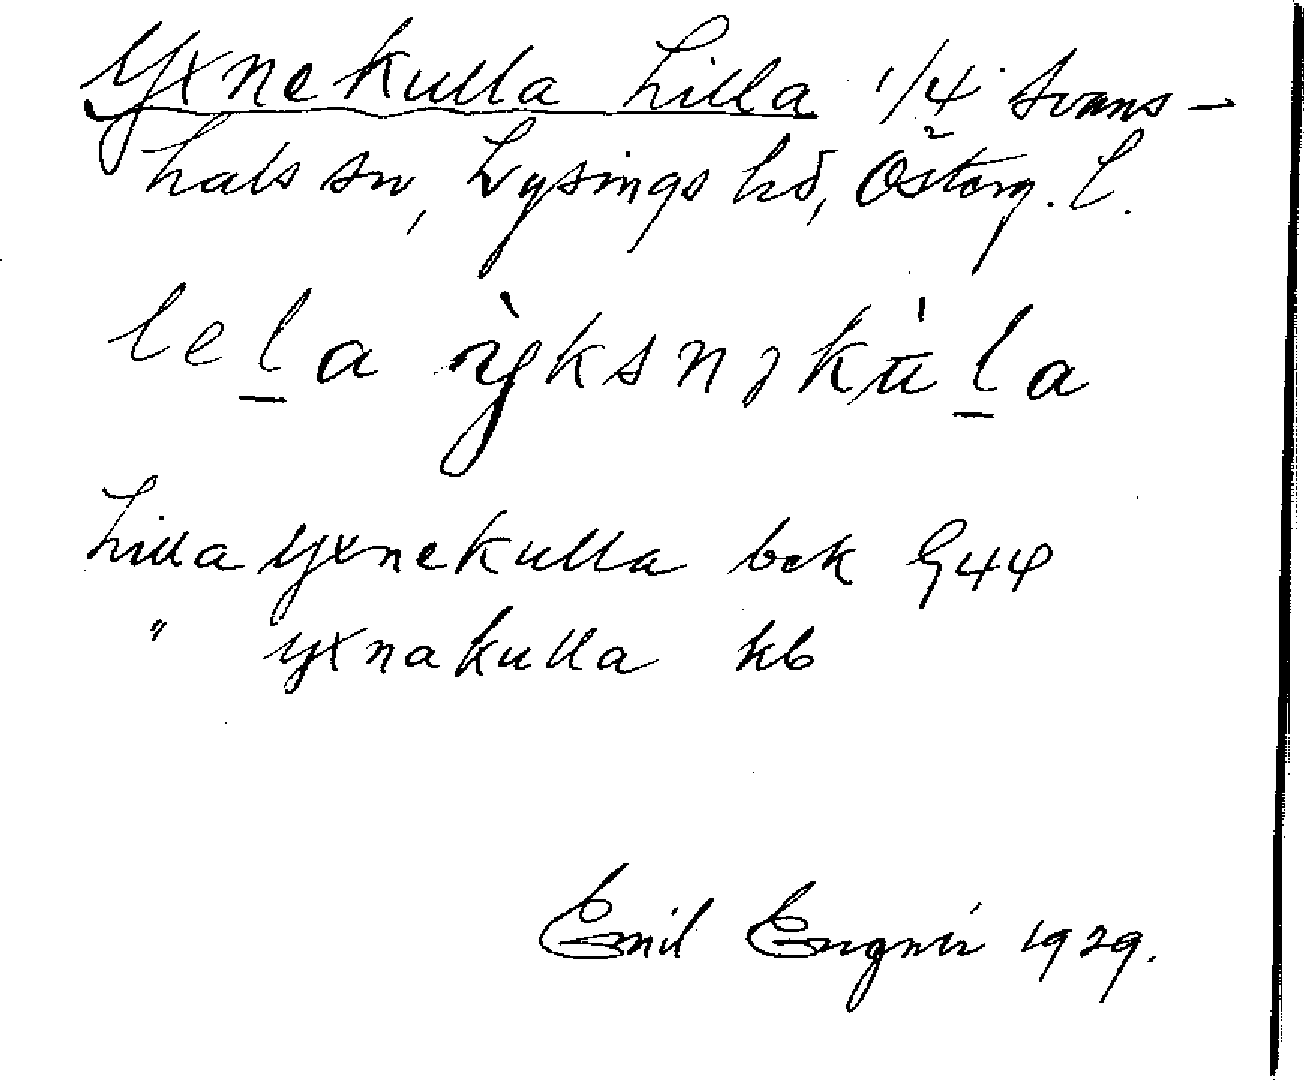 Yxnekulla Lilla 1/4 Svans-
hals sn, Lysings hd, Österg. l.
lel̲a ỳksnəkùl̲a
Lilla Yxnekulla bek G44
" Yxnakulla kb
Emil Engnér 1929.